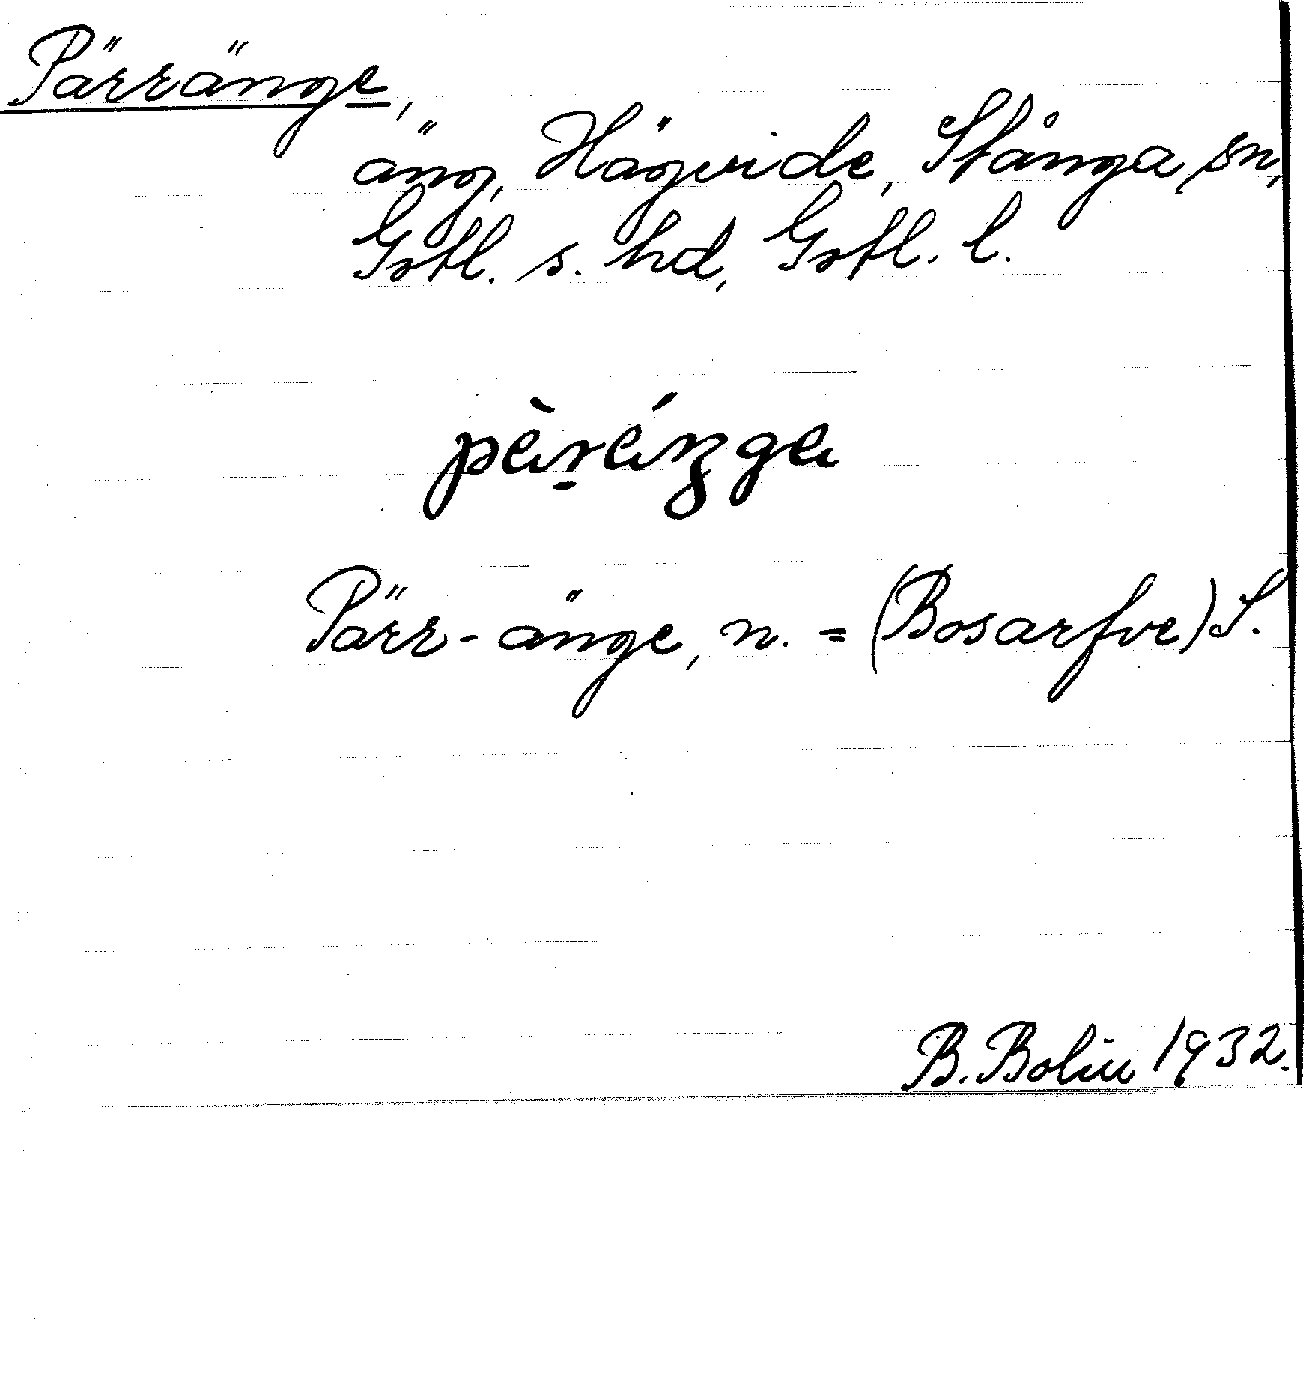 Pärränge,
äng, Hägvide, Stånga sn,
Gotl. s. hd, Gotl. l.
Pärr-änge, n. = (Bosarfve) S.
B. Bolin 1932.